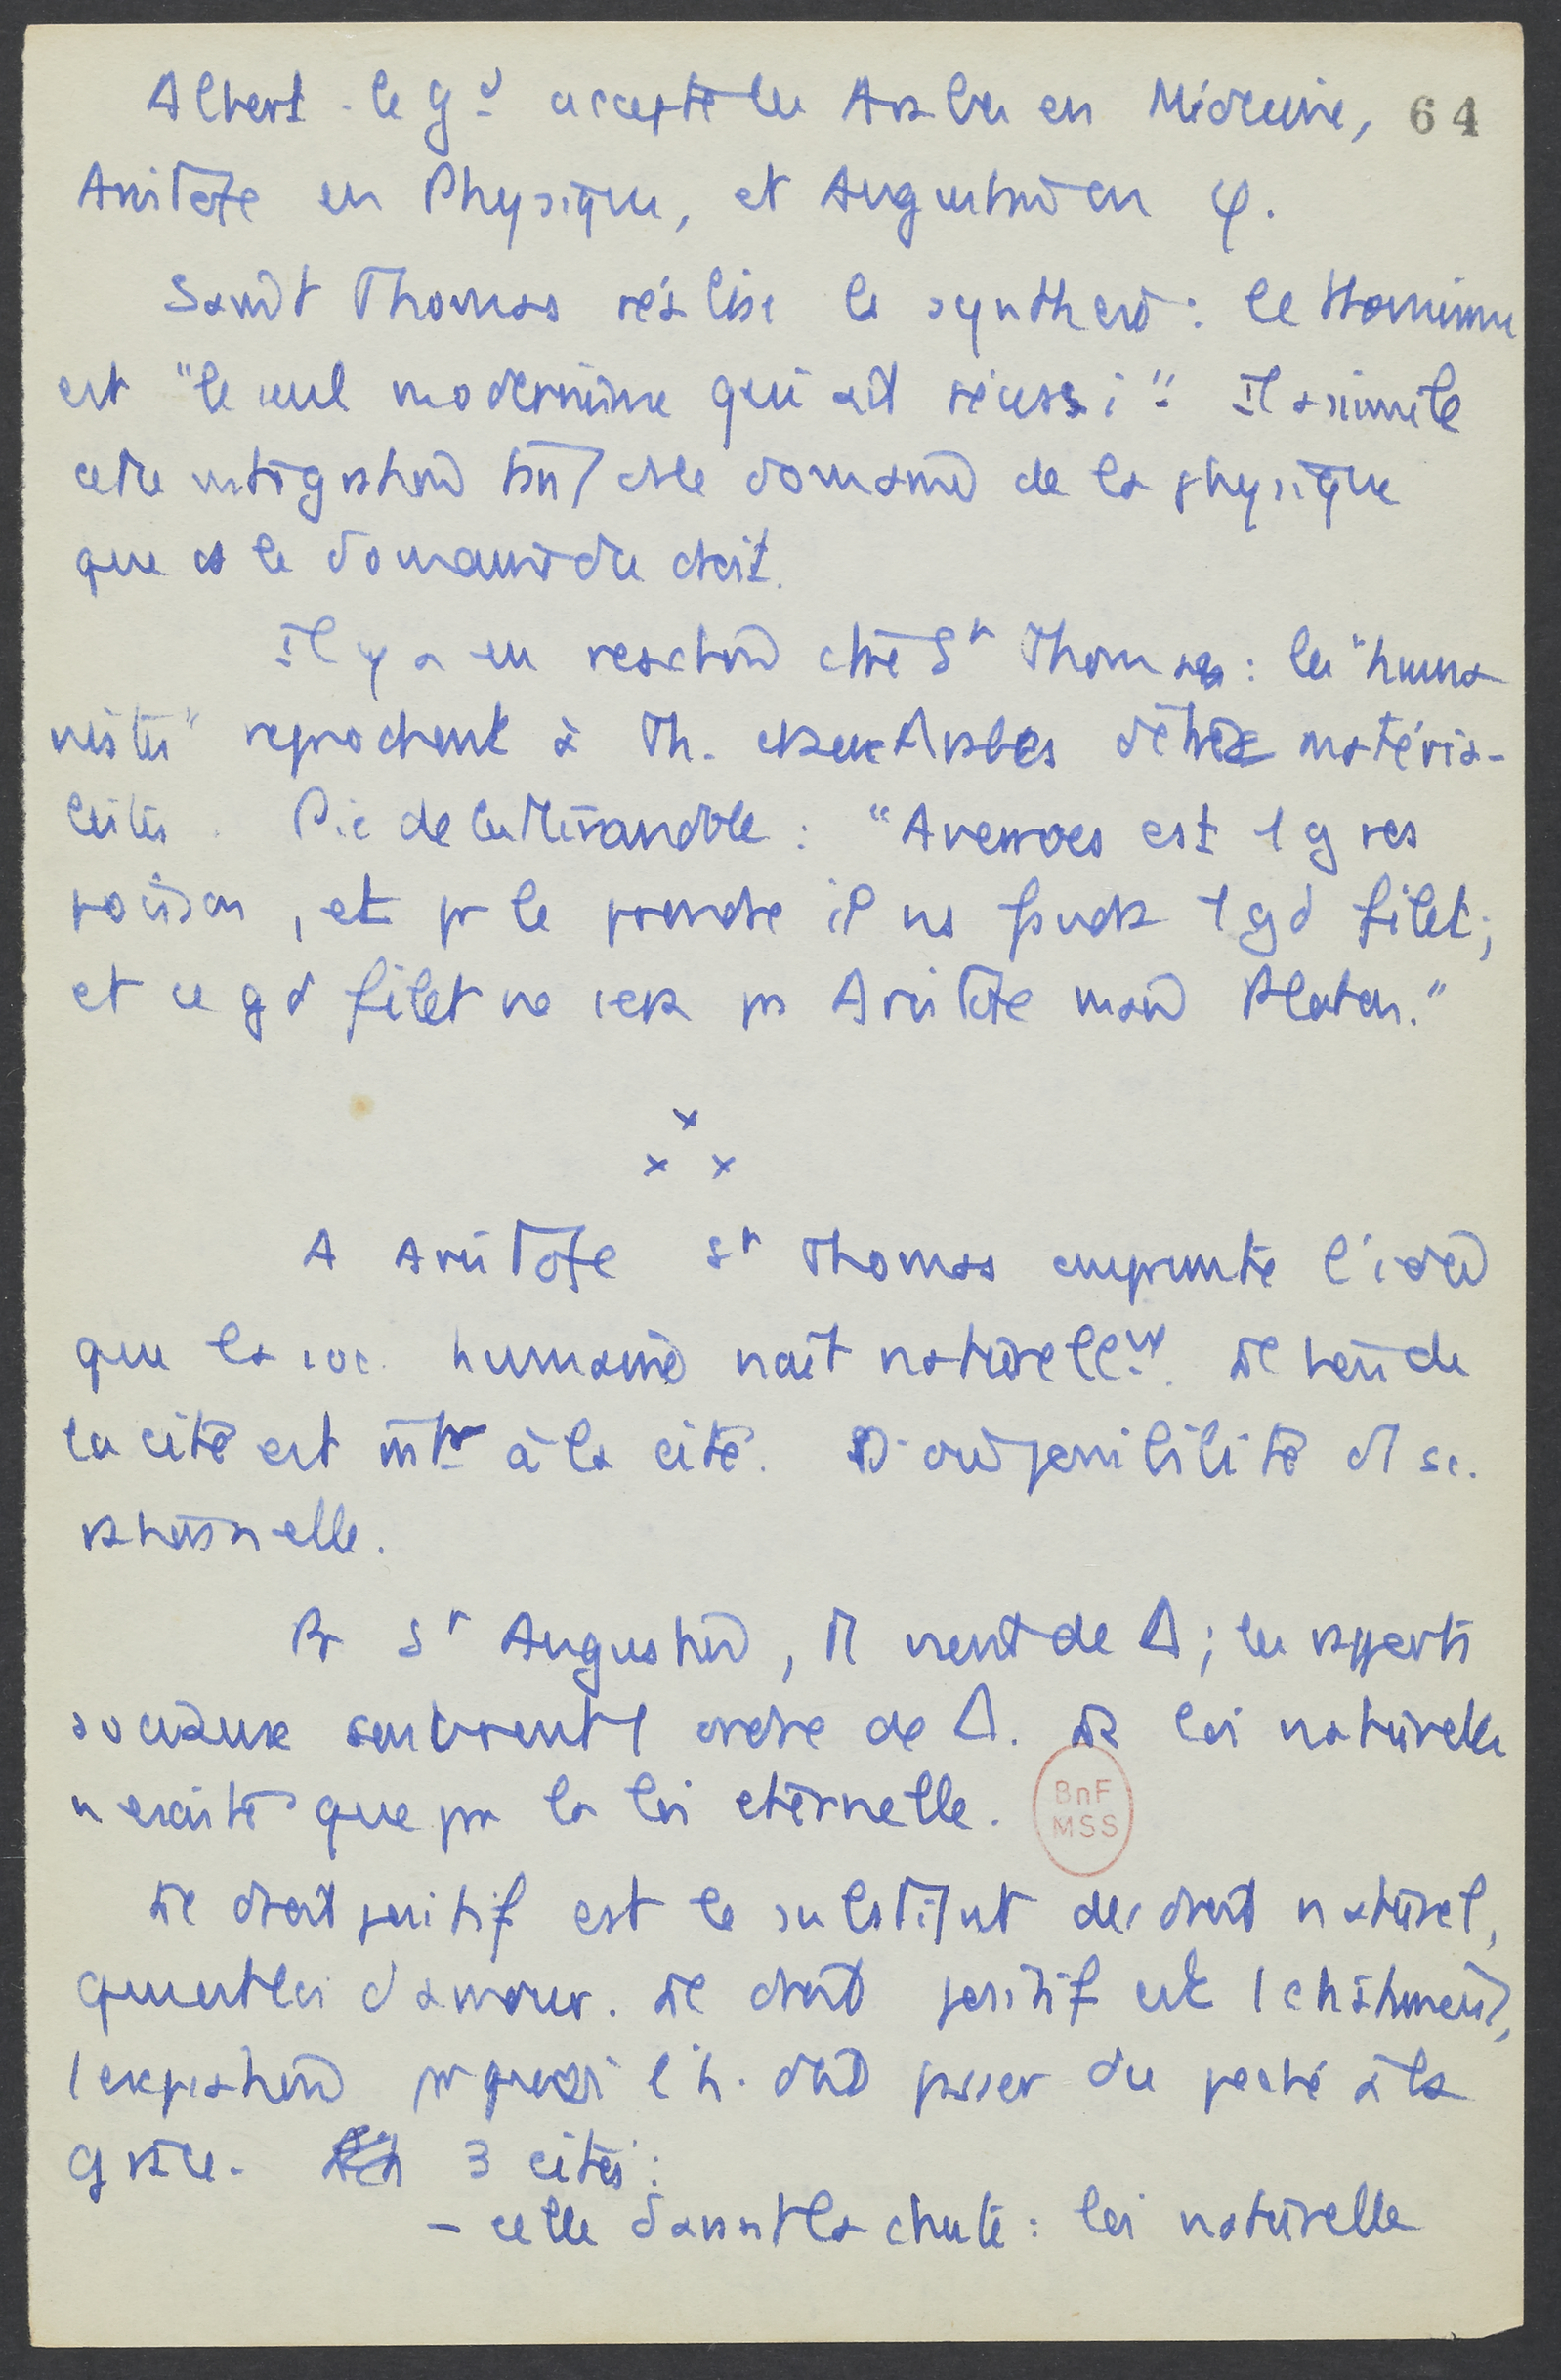 Albert le gd accepte les Arabes en Médecine, 64
Aristote en Physique, et Augustin en φ.
Saint Thomas réalise la synthèse : le thomisme
est "le seul modernisme qui ait réussi". Il assimile
cette intégration ds le domaine de la physique
que ds le domaine du droit.
Il y a eu réaction ctre St Thomas : les "huma
nistes" reprochent à Th. et aux Arabes d'être matéria-
listes. Pic de la Mirandole : "Averroes est 1 gros
poisson, et pr le prendre il ns faudra 1 gd filet ;
et ce gd filet ne sera pas Aristote mais Platon."
x
x x
A Aristote St Thomas emprunte l'idée
que la soc. humaine naît naturellemt. Le bien de
la cité est intr à la cité. D'où possibilité d'1 sc.
rationnelle.
Pr St Augustin, tt vient de Δ ; les rapports
sociaux sont 1 ordre de Δ. La loi naturelle
n'existe que par la loi éternelle.
BnF
MSS
Le droit positif est le substitut du droit naturel,
qui est loi d'amour. Le droit positif est 1 châtiment,
1 expiation par quoi l'h. doit passer du péché à la
grâce. 3 cités :
- celle d'avant la chute : loi naturelle